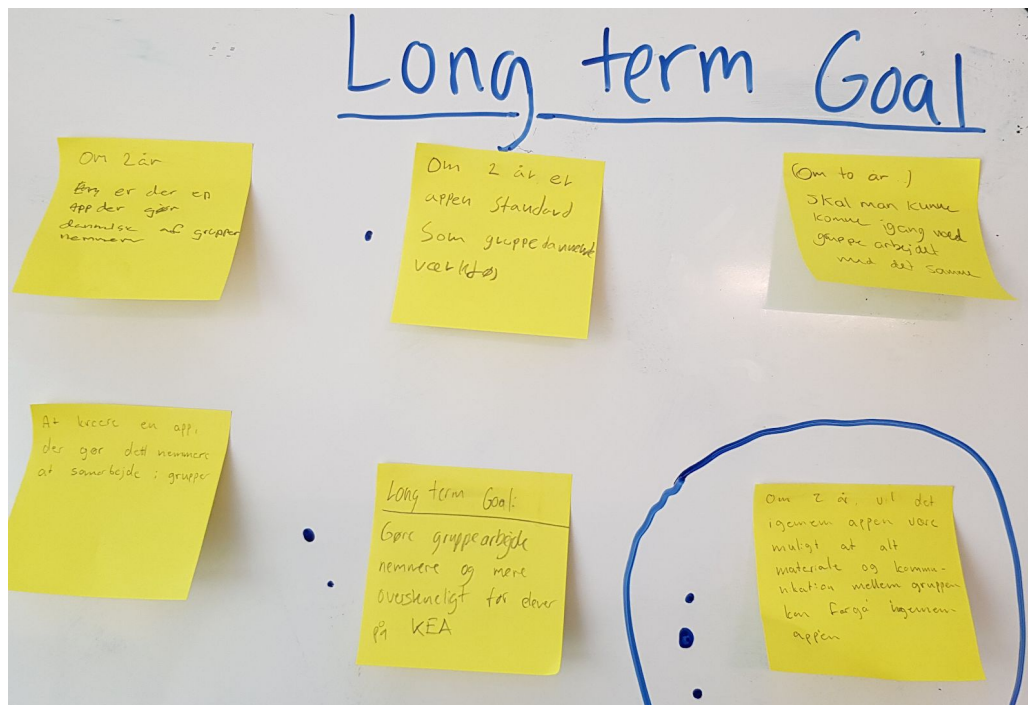 Long term Goal
Om 2 år
er der en
App der gør
dannelse af grupper
nemmere
Om 2 år er
appen standard
Som gruppedannende
værktøj
(Om to år)
Skal man kunne
komme igang ved
gruppe arbejdet
med det samme
At kreere en app,
der gør dett nemmere
at samarbejde i grupper
Long term Goal:
Gøre gruppearbejde
nemmere og mere
overskueligt for elever
på KEA
Om 2 år, vil det
igennem appen være
muligt at alt
materiale og kommu-
nikation mellem gruppen
kan forgå ingennem
appen